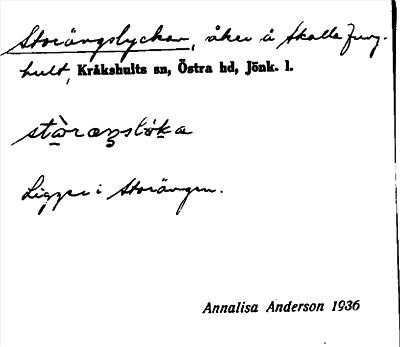 Storängslyckan, åker å Skalla Ljung-
hult, Kråkshults sn, Östra hd, Jönk. l.
Ligger i Storängen.
Annalisa Anderson 1936